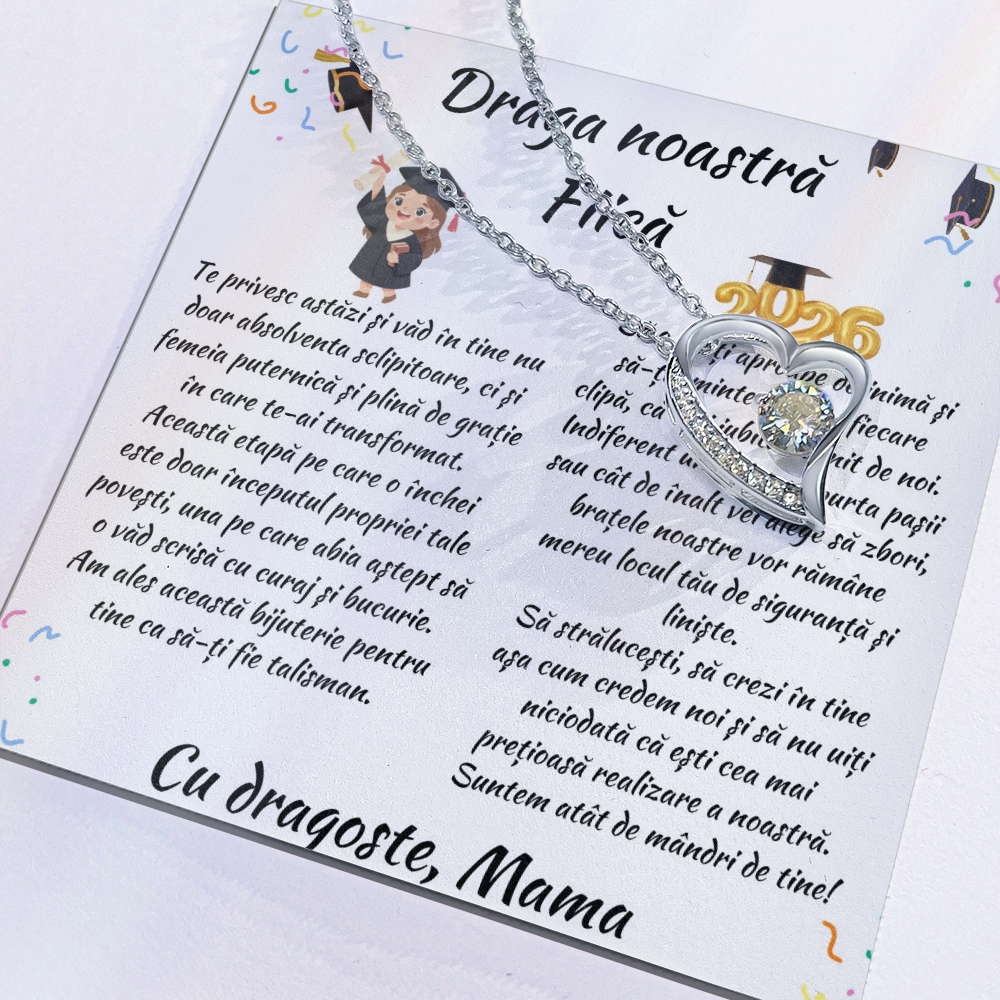 Draga noastră
Fiică
Te privesc astăzi și văd în tine nu
doar absolventa sclipitoare, ci și
femeia puternică și plină de grație
în care te-ai transformat.
Această etapă pe care o închei
este doar începutul propriei tale
povești, una pe care abia aștept să
o văd scrisă cu curaj și bucurie.
Am ales această bijuterie pentru
tine ca să-ți fie talisman.
2026
inimă și
clipă, fiecare
de noi.
Indiferent pașii
sau cât de înalt vei alege să zbori,
brațele noastre vor rămâne
mereu locul tău de siguranță și
liniște.
Să strălucești, să crezi în tine
așa cum credem noi și să nu uiți
niciodată că ești cea mai
prețioasă realizare a noastră.
Suntem atât de mândri de tine!
Cu dragoste, Mama